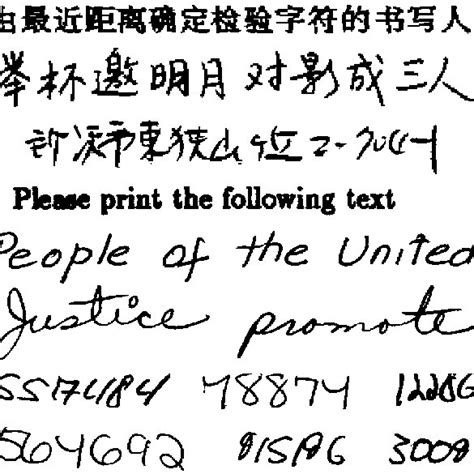 由最近距离确定检验字符的书写人
举杯邀明月对影成三人
東狭山
Please print the following text
People of the United
Justice promote
5517484 78874
564692 815186 3008